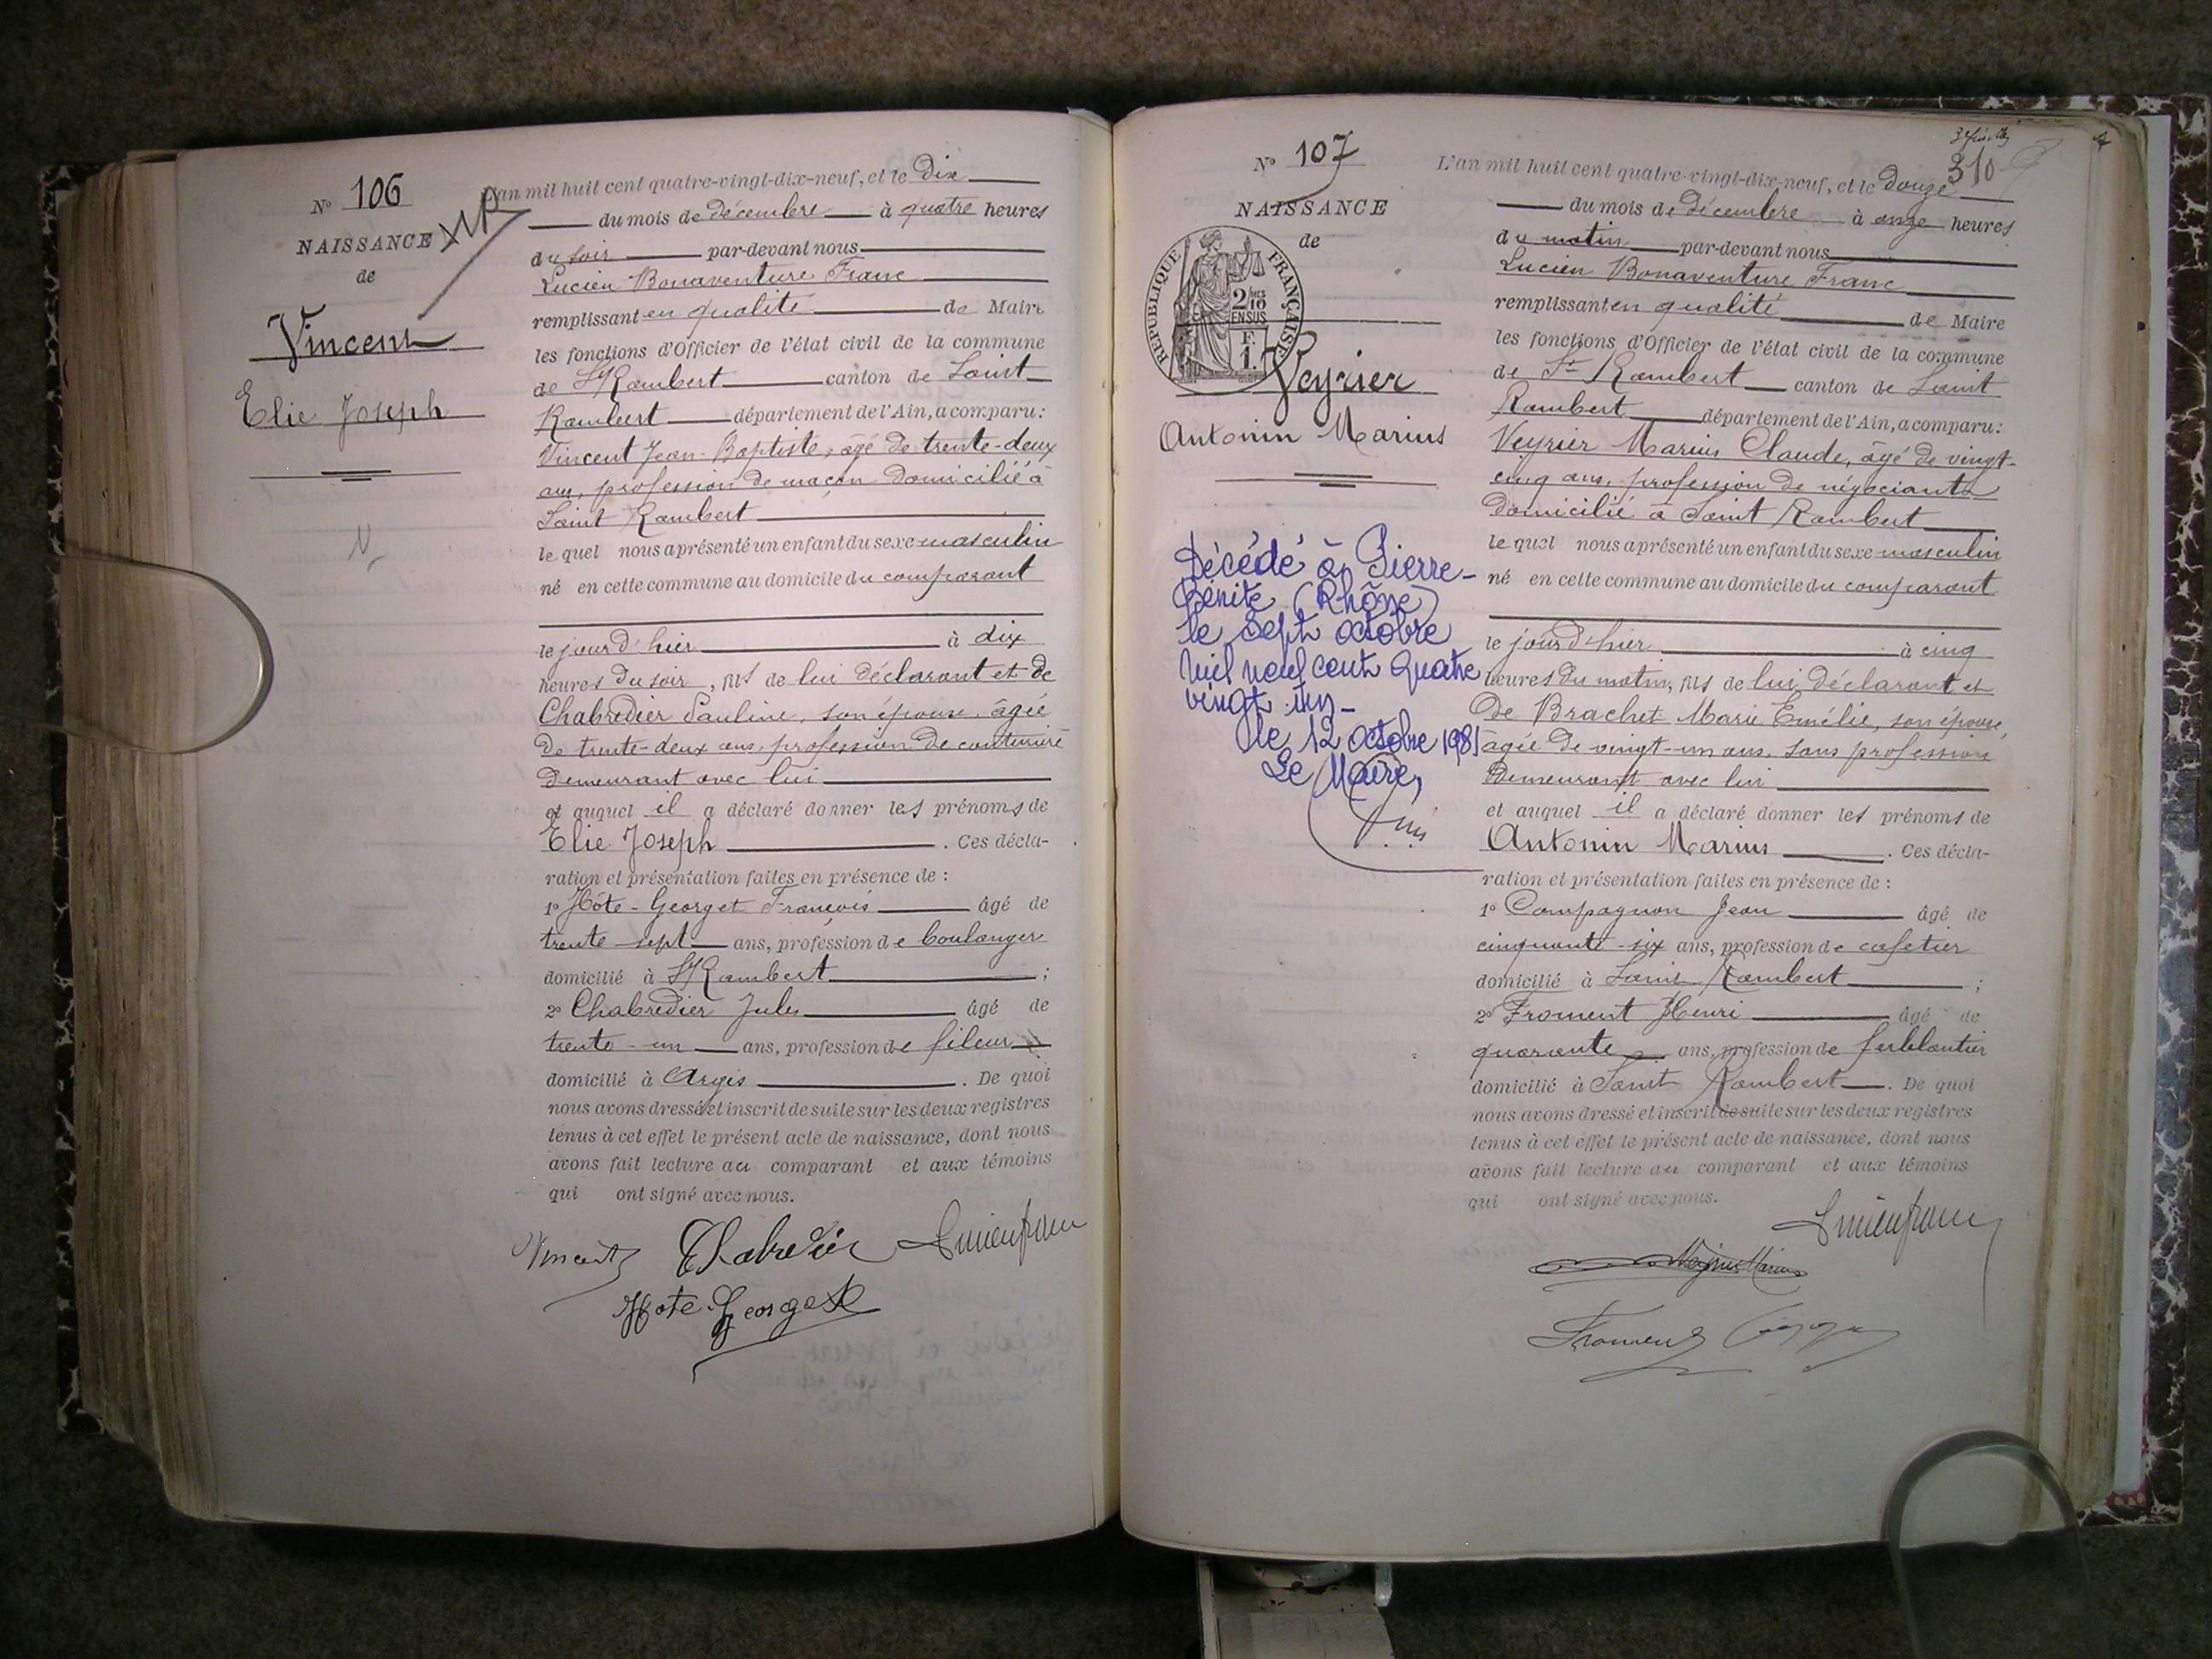 N° 106
NAISSANCE
de
Vincent
Elie Joseph
N
L'an mil huit cent quatre-vingt-dix-neuf, et le dix
du mois de décembre à quatre heures
du soir par-devant nous
Lucien Bonaventure Franc
remplissant en qualité de Maire
les fonctions d'Officier de l'état civil de la commune
de St Rambert canton de Saint
Rambert département de l'Ain, a comparu:
Vincent Jean-Baptiste, âgé de trente-deux
ans, profession de maçon domicilié à
Saint Rambert
lequel nous a présenté un enfant du sexe masculin
né en cette commune au domicile du comparant
le jour d'hier à dix
heures du soir, fils de lui déclarant et de
Chabredier Pauline, son épouse, âgée
de trente-deux ans, profession de couturière
demeurant avec lui
et auquel il a déclaré donner les prénoms de
Elie Joseph. Ces décla-
ration et présentation faites en présence de :
1° Hôte-Georget François âgé de
trente-sept ans, profession de boulanger
domicilié à St Rambert ;
2° Chabredier Jules âgé de
trente-un ans, profession de fileur
domicilié à Argis. De quoi
nous avons dressé et inscrit de suite sur les deux registres
tenus à cet effet le présent acte de naissance, dont nous
avons fait lecture au comparant et aux témoins
qui ont signé avec nous.
Vincent Chabredier Lucien franc
Hote-Georget
3e feuillet
310
N° 107
NAISSANCE
de
RÉPUBLIQUE FRANÇAISE
2/10 MES
EN SUS
F.
1.
Veyrier
Antonin Marius
Décédé à Pierre-
Bénite (Rhône)
le sept octobre
mil neuf cent quatre
vingt un-
le 12 octobre 1981
Le Maire,
L'an mil huit cent quatre-vingt-dix-neuf, et le douze
du mois de décembre à onze heures
du matin par-devant nous
Lucien Bonaventure Franc
remplissant en qualité de Maire
les fonctions d'Officier de l'état civil de la commune
de St Rambert canton de Saint
Rambert département de l'Ain, a comparu:
Veyrier Marius Claude, âgé de vingt-
cinq ans, profession de négociant
domicilié à Saint Rambert
lequel nous a présenté un enfant du sexe masculin
né en cette commune au domicile du comparant
le jour d'hier à cinq
heures du matin, fils de lui déclarant et
de Brachet Marie Emélie, son épouse,
âgée de vingt-un ans, sans profession
demeurant avec lui
et auquel il a déclaré donner les prénoms de
Antonin Marius. Ces décla-
ration et présentation faites en présence de :
1° Compagnon Jean âgé de
cinquante-six ans, profession de cafetier
domicilié à Saint Rambert ;
2° Froment Henri âgé de
quarante ans, profession de ferblantier
domicilié à Saint Rambert. De quoi
nous avons dressé et inscrit de suite sur les deux registres
tenus à cet effet le présent acte de naissance, dont nous
avons fait lecture au comparant et aux témoins
qui ont signé avec nous.
Lucien franc
Veyrier Marius
Froment